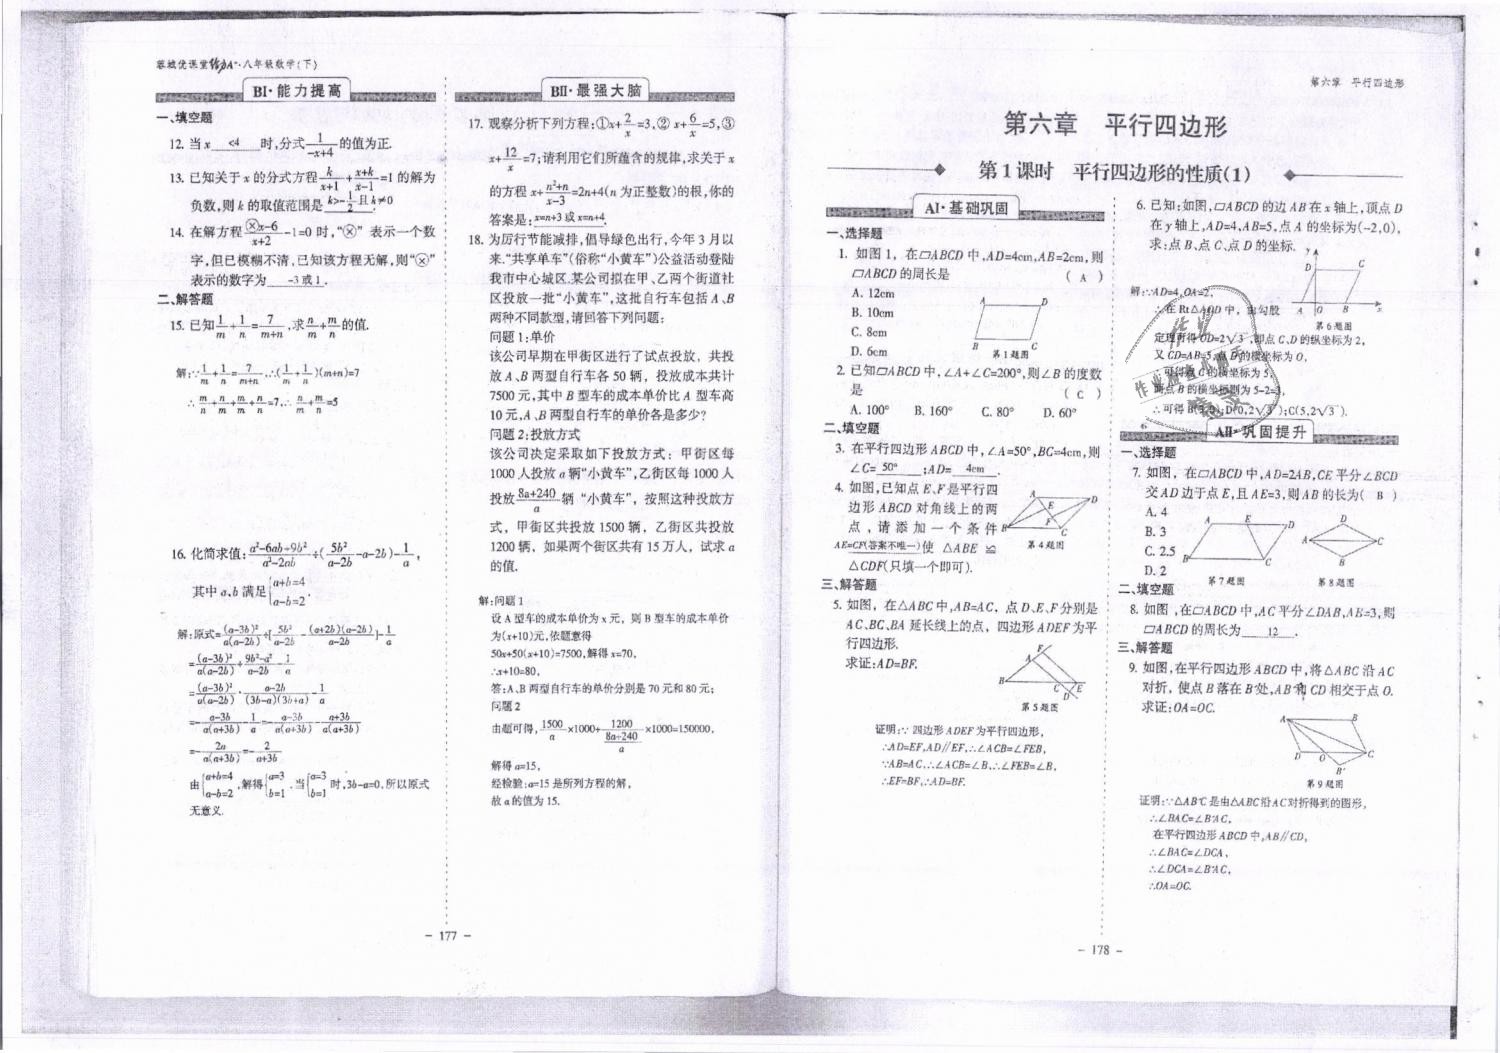 蓉城优课堂给力A⁺·八年级数学(下)
BⅠ·能力提高
一、填空题
12. 当 x <4 时,分式 1/(-x+4) 的值为正.
13. 已知关于 x 的分式方程 k/(x+1) + (x+k)/(x-1) =1 的解为
负数,则 k 的取值范围是 k>-1/2 且 k≠0 .
14. 在解方程 (⊗x-6)/(x+2) -1=0 时,“⊗” 表示一个数
字,但已模糊不清,已知该方程无解,则“⊗”
表示的数字为 -3 或 1 .
二、解答题
15. 已知 1/m + 1/n = 7/(m+n) ,求 n/m + m/n 的值.
解:∵ 1/m + 1/n = 7/(m+n) ,∴( 1/m + 1/n )(m+n)=7
∴ m/n + m/m + n/n + n/m =7,∴ n/m + m/n =5
16. 化简求值: (a²-6ab+9b²)/(a²-2ab) ÷( 5b²/(a-2b) -a-2b)- 1/a ,
其中 a、b 满足 {a+b=4 a-b=2 .
解:原式= (a-3b)²/(a(a-2b)) ÷[ 5b²/(a-2b) - (a+2b)(a-2b)/(a-2b) ]- 1/a
= (a-3b)²/(a(a-2b)) ÷ (9b²-a²)/(a-2b) - 1/a
= (a-3b)²/(a(a-2b)) · (a-2b)/((3b-a)(3b+a)) - 1/a
=- (a-3b)/(a(a+3b)) - 1/a =- (a-3b)/(a(a+3b)) - (a+3b)/(a(a+3b))
=- 2a/(a(a+3b)) =- 2/(a+3b)
由 {a+b=4 a-b=2 ,解得 {a=3 b=1 .当 {a=3 b=1 时,3b-a=0,所以原式
无意义.
BⅡ·最强大脑
17. 观察分析下列方程:①x+ 2/x =3,② x+ 6/x =5,③
x+ 12/x =7;请利用它们所蕴含的规律,求关于 x
的方程 x+ (n²+n)/(x-3) =2n+4(n 为正整数)的根,你的
答案是: x=n+3 或 x=n+4 .
18. 为厉行节能减排,倡导绿色出行,今年 3 月以
来.“共享单车”(俗称“小黄车”)公益活动登陆
我市中心城区.某公司拟在甲、乙两个街道社
区投放一批“小黄车”,这批自行车包括 A、B
两种不同款型,请回答下列问题:
问题 1:单价
该公司早期在甲街区进行了试点投放，共投
放 A、B 两型自行车各 50 辆，投放成本共计
7500 元,其中 B 型车的成本单价比 A 型车高
10 元,A、B 两型自行车的单价各是多少?
问题 2:投放方式
该公司决定采取如下投放方式：甲街区每
1000 人投放 a 辆“小黄车”,乙街区每 1000 人
投放 (8a+240)/a 辆 “小黄车”，按照这种投放方
式，甲街区共投放 1500 辆，乙街区共投放
1200 辆，如果两个街区共有 15 万人，试求 a
的值.
解:问题 1
设 A 型车的成本单价为 x 元，则 B 型车的成本单价
为(x+10)元,依题意得
50x+50(x+10)=7500,解得 x=70,
∴x+10=80,
答:A、B 两型自行车的单价分别是 70 元和 80 元;
问题 2
由题可得, 1500/a ×1000+ 1200/((8a+240)/a) ×1000=150000,
解得 a=15,
经检验:a=15 是所列方程的解,
故 a 的值为 15.
- 177 -
第六章 平行四边形
第六章 平行四边形
第 1 课时 平行四边形的性质(1)
AⅠ·基础巩固
一、选择题
1. 如图 1，在▱ABCD 中,AD=4cm,AB=2cm,则
▱ABCD 的周长是 ( A )
A. 12cm
B. 10cm
C. 8cm
D. 6cm
A D
B C
第 1 题图
2. 已知▱ABCD 中,∠A+∠C=200°,则∠B 的度数
是 ( C )
A. 100° B. 160° C. 80° D. 60°
二、填空题
3. 在平行四边形 ABCD 中,∠A=50°,BC=4cm,则
∠C= 50° ;AD= 4cm .
4. 如图,已知点 E、F 是平行四
边形 ABCD 对角线上的两
点，请添加一个条件
AE=CF(答案不唯一)使 △ABE ≌
△CDF(只填一个即可).
A D
E
F
B C
第 4 题图
三、解答题
5. 如图，在△ABC 中,AB=AC，点 D、E、F 分别是
AC、BC、BA 延长线上的点，四边形 ADEF 为平
行四边形.
求证:AD=BF.
F
A
B C E
D
第 5 题图
证明:∵ 四边形 ADEF 为平行四边形,
∴AD=EF,AD∥EF,∴∠ACB=∠FEB,
∵AB=AC,∴∠ACB=∠B,∴∠FEB=∠B,
∴EF=BF,∴AD=BF.
6. 已知:如图,▱ABCD 的边 AB 在 x 轴上,顶点 D
在 y 轴上,AD=4,AB=5,点 A 的坐标为(-2,0),
求:点 B、点 C、点 D 的坐标.
y
D C
A O B x
第 6 题图
解:∵AD=4,OA=2,
∴在 Rt△AOD 中，由勾股
定理可得 OD=2√3,即点 C、D 的纵坐标为 2,
又 CD=AB=5,点 D 的横坐标为 0,
∴可得点 C 的横坐标为 5,
点 B 的横坐标则为 5-2=3,
∴可得 B(3,0);D(0,2√3);C(5,2√3).
AⅡ·巩固提升
一、选择题
7. 如图，在▱ABCD 中,AD=2AB,CE 平分∠BCD
交 AD 边于点 E,且 AE=3,则 AB 的长为( B )
A. 4
B. 3
C. 2.5
D. 2
A E D
B C
第 7 题图
D
A C
B
第 8 题图
二、填空题
8. 如图 ,在▱ABCD 中,AC 平分∠DAB,AB=3,则
▱ABCD 的周长为 12 .
三、解答题
9. 如图,在平行四边形 ABCD 中,将△ABC 沿 AC
对折，使点 B 落在 B′处,AB′和 CD 相交于点 O.
求证:OA=OC.
A B
D O C
B′
第 9 题图
证明:∵△AB′C 是由△ABC沿AC对折得到的图形,
∴∠BAC=∠B′AC,
在平行四边形 ABCD 中,AB∥CD,
∴∠BAC=∠DCA,
∴∠DCA=∠B′AC,
∴OA=OC.
- 178 -